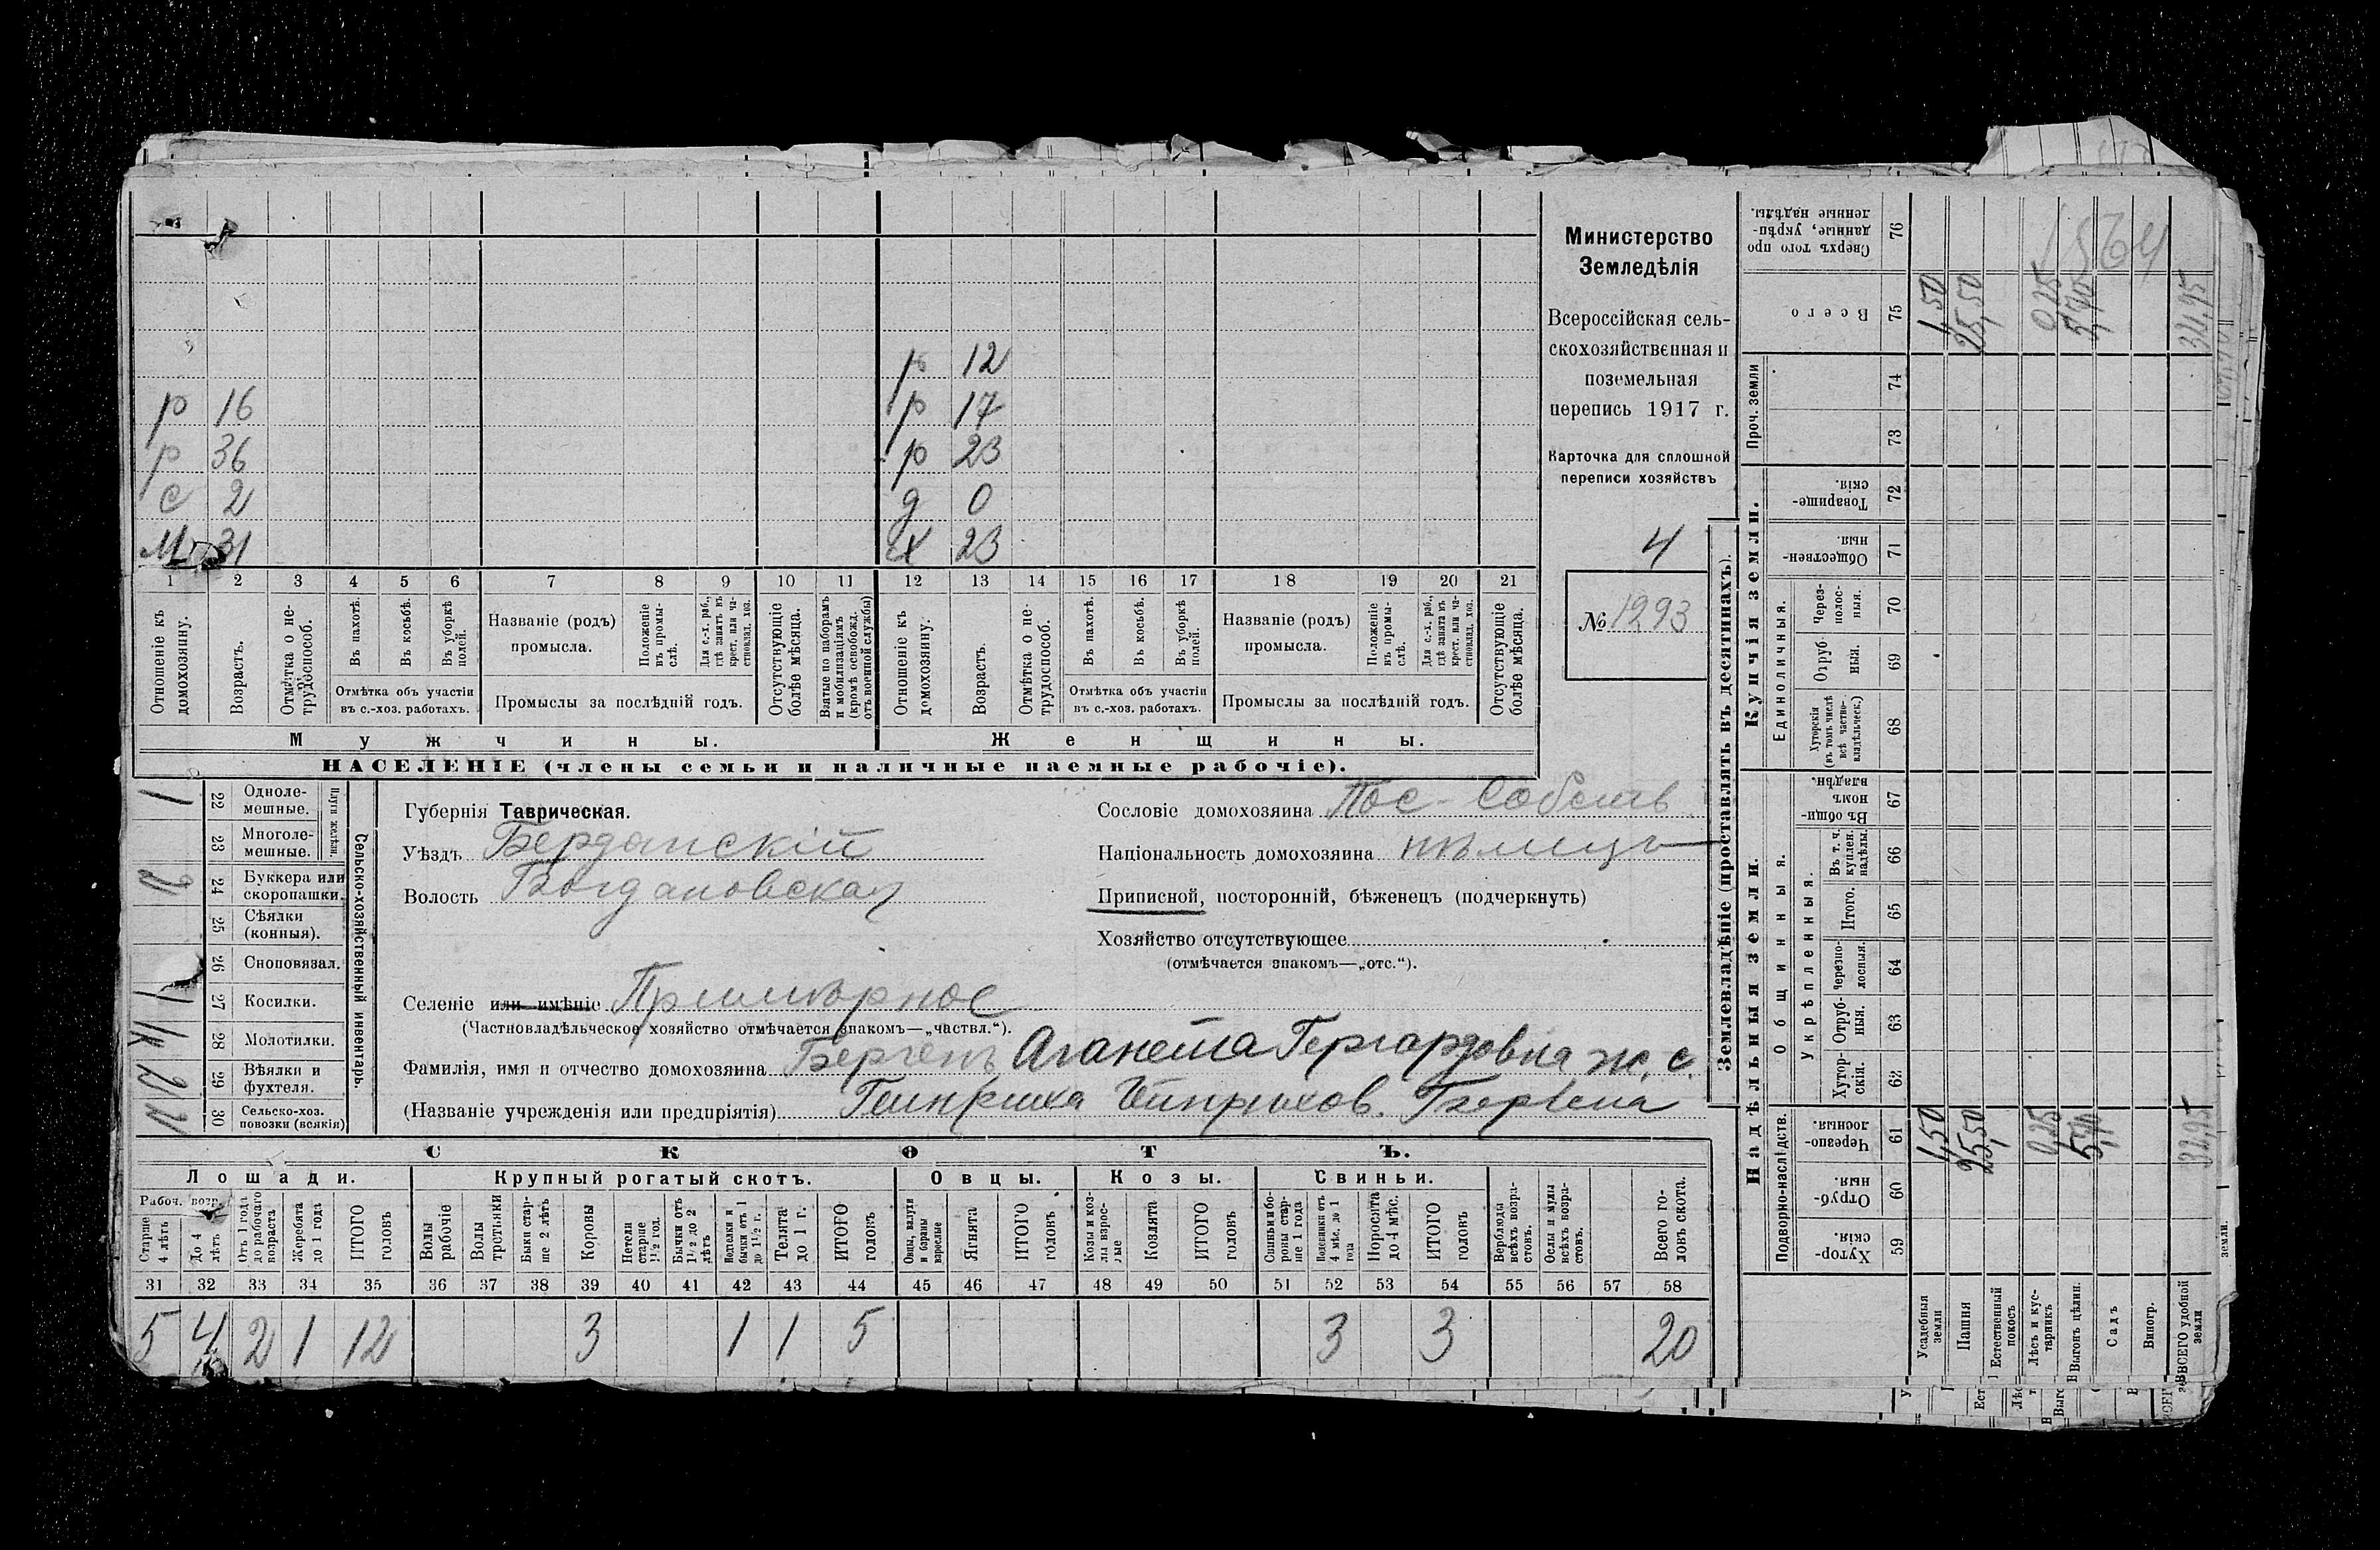 р 12
р 16 р 17
р 36 р 23
с 2 д 0
М 31 х 23
1 2 3 4 5 6 7 8 9 10 11 12 13 14 15 16 17 18 19 20 21
Отношеніе къ домохозяину.
Возрастъ.
Отмѣтка о нетрудоспособ.
Въ пахотѣ.
Въ косьбѣ.
Въ уборкѣ полей.
Отмѣтка объ участіи
въ с.-хоз. работахъ.
Названіе (родъ)
промысла.
Положеніе въ промыслѣ.
Для с.-х. раб., гдѣ занятъ въ крест. или частновлад. хоз.
Промыслы за послѣдній годъ.
Отсутствующіе болѣе мѣсяца.
Взятые по наборамъ и мобилизаціямъ (кромѣ освобожд. отъ военной службы)
Отношеніе къ домохозяину.
Возрастъ.
Отмѣтка о нетрудоспособ.
Въ пахотѣ.
Въ косьбѣ.
Въ уборкѣ полей.
Отмѣтка объ участіи
въ с.-хоз. работахъ.
Названіе (родъ)
промысла.
Положеніе въ промыслѣ.
Для с.-х. раб., гдѣ занята въ крест. или частновлад. хоз.
Промыслы за послѣдній годъ.
Отсутствующіе болѣе мѣсяца.
Мужчины. Женщины.
НАСЕЛЕНІЕ (члены семьи и наличные наемные рабочіе).
Министерство
Земледѣлія
Всероссійская сель-
скохозяйственная и
поземельная
перепись 1917 г.
Карточка для сплошной
переписи хозяйствъ
4
№ 1293
Сельско-хозяйственный инвентарь.
Плуги желѣзн.
1 22 Однолемешные.
23 Многолемешные.
2 24 Буккера или скоропашки.
25 Сѣялки (конныя).
26 Сноповязал.
1 27 Косилки.
1к 28 Молотилки.
2 29 Вѣялки и фухтеля.
2 30 Сельско-хоз. повозки (всякія)
Губернія Таврическая.
Уѣздъ Бердянскій
Волость Богдановская
Селеніе или имѣніе Примѣрное
(Частновладѣльческое хозяйство отмѣчается знакомъ—„частвл.“).
Фамилія, имя и отчество домохозяина Бергенъ Аганета Гергардовна ж. с.
(Названіе учрежденія или предпріятія) Гейнриха Гейнрихов. Бергена
Сословіе домохозяина Пос-Собств
Національность домохозяина нѣмецъ
Приписной, посторонній, бѣженецъ (подчеркнуть)
Хозяйство отсутствующее
(отмѣчается знакомъ—„отс.“).
СКОТЪ.
Лошади. Крупный рогатый скотъ. Овцы. Козы. Свиньи.
Рабоч. возр.
Старше 4 лѣтъ
До 4 лѣтъ
Отъ 1 года до рабочаго возраста
Жеребята до 1 года
ИТОГО головъ
Волы рабочіе
Волы третьяки
Быки старше 2 лѣтъ
Коровы
Нетели старше 1½ год.
Бычки отъ 1½ до 2 лѣтъ
Нетелки и бычки отъ 1 до 1½ г.
Телята до 1 г.
ИТОГО головъ
Овцы, валухи и бараны взрослые
Ягнята
ИТОГО головъ
Козы и козлы взрослые
Козлята
ИТОГО головъ
Свиньи и боровы старше 1 года
Подсвинки отъ 4 мѣс. до 1 года
Поросята до 4 мѣс.
ИТОГО головъ
Верблюды всѣхъ возрастовъ.
Ослы и мулы всѣхъ возрастовъ.
Всего головъ скота.
31 32 33 34 35 36 37 38 39 40 41 42 43 44 45 46 47 48 49 50 51 52 53 54 55 56 57 58
5 4 2 1 12 3 1 1 5 3 3 20
Землевладѣніе (проставлять въ десятинахъ).
Купчія земли.
Надѣльныя земли.
Сверхъ того проданные, укрѣпленные надѣлы. 76
1564
Всего 75 1,50 25,50 0,25 32,95
Проч. земли 74 73
Товарищескія. 72
Общественныя. 71
Единоличныя.
Черезполосныя. 70
Отрубныя. 69
Хуторскія (въ томъ числѣ всѣ частновладѣльческ.) 68
Общинныя.
Въ общинномъ владѣн. 67
Укрѣпленныя.
Въ т. ч. куплен. надѣлы. 66
Итого. 65
Черезполосныя. 64
Отрубныя. 63
Хуторскія. 62
Подворно-наслѣдств.
Черезполосныя. 61 1,50 25,50 0,25 32,95
Отрубныя. 60
Хуторскія. 59
Усадебныя земли
Пашня
Естественный покосъ
Лѣсъ и кустарникъ
Выгонъ цѣлин.
Садъ
Виногр.
ВСЕГО удобной земли